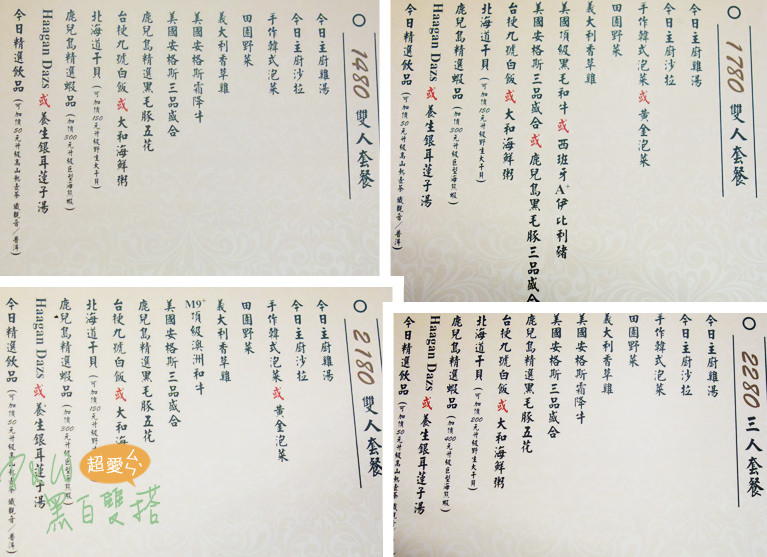 1480 雙人套餐
今日主廚雞湯
今日主廚沙拉
手作韓式泡菜
田園野菜
義大利香草雞
美國安格斯霜降牛
美國安格斯三品盛合
鹿兒島精選黑毛豚五花
台梗九號白飯或大和海鮮粥
北海道干貝(可加價150元升級野生大干貝)
鹿兒島精選蝦品(可加價300元升級巨型海熊蝦)
Haagan Dazs 或 養生銀耳蓮子湯
今日精選飲品(可加價50元升級高山熱壺茶 鐵觀音/普洱)
1780 雙人套餐
今日主廚雞湯
今日主廚沙拉
手作韓式泡菜或黃金泡菜
田園野菜
義大利香草雞
美國頂級黑毛和牛或西班牙A+伊比利豬
美國安格斯三品盛合或鹿兒島黑毛豚三品盛合
台梗九號白飯或大和海鮮粥
北海道干貝(可加價150元升級野生大干貝)
鹿兒島精選蝦品(可加價300元升級巨型海熊蝦)
Haagan Dazs 或 養生銀耳蓮子湯
今日精選飲品(可加價50元升級高山熱壺茶 鐵觀音/普洱)
2180 雙人套餐
今日主廚雞湯
今日主廚沙拉
手作韓式泡菜或黃金泡菜
田園野菜
義大利香草雞
M9+頂級澳洲和牛
美國安格斯三品盛合
鹿兒島精選黑毛豚五花
台梗九號白飯或大和海
北海道干貝(可加價150元升級野生
鹿兒島精選蝦品(加價300元升級巨型海熊蝦)
Haagan Dazs 或養生銀耳蓮子湯
今日精選飲品(可加價50元升級高山熱壺茶 鐵觀音/普洱)
超愛ㄙㄣ
黑白雙搭
2280 三人套餐
今日主廚雞湯
今日主廚沙拉
手作韓式泡菜
田園野菜
義大利香草雞
美國安格斯霜降牛
美國安格斯三品盛合
鹿兒島精選黑毛豚五花
台梗九號白飯或大和海鮮粥
北海道干貝(可加價200元升級野生大干貝)
鹿兒島精選蝦品(加價400元升級巨型海熊蝦)
Haagan Dazs 或 養生銀耳蓮子湯
今日精選飲品(可加價50元升級高山熱壺茶 鐵觀音